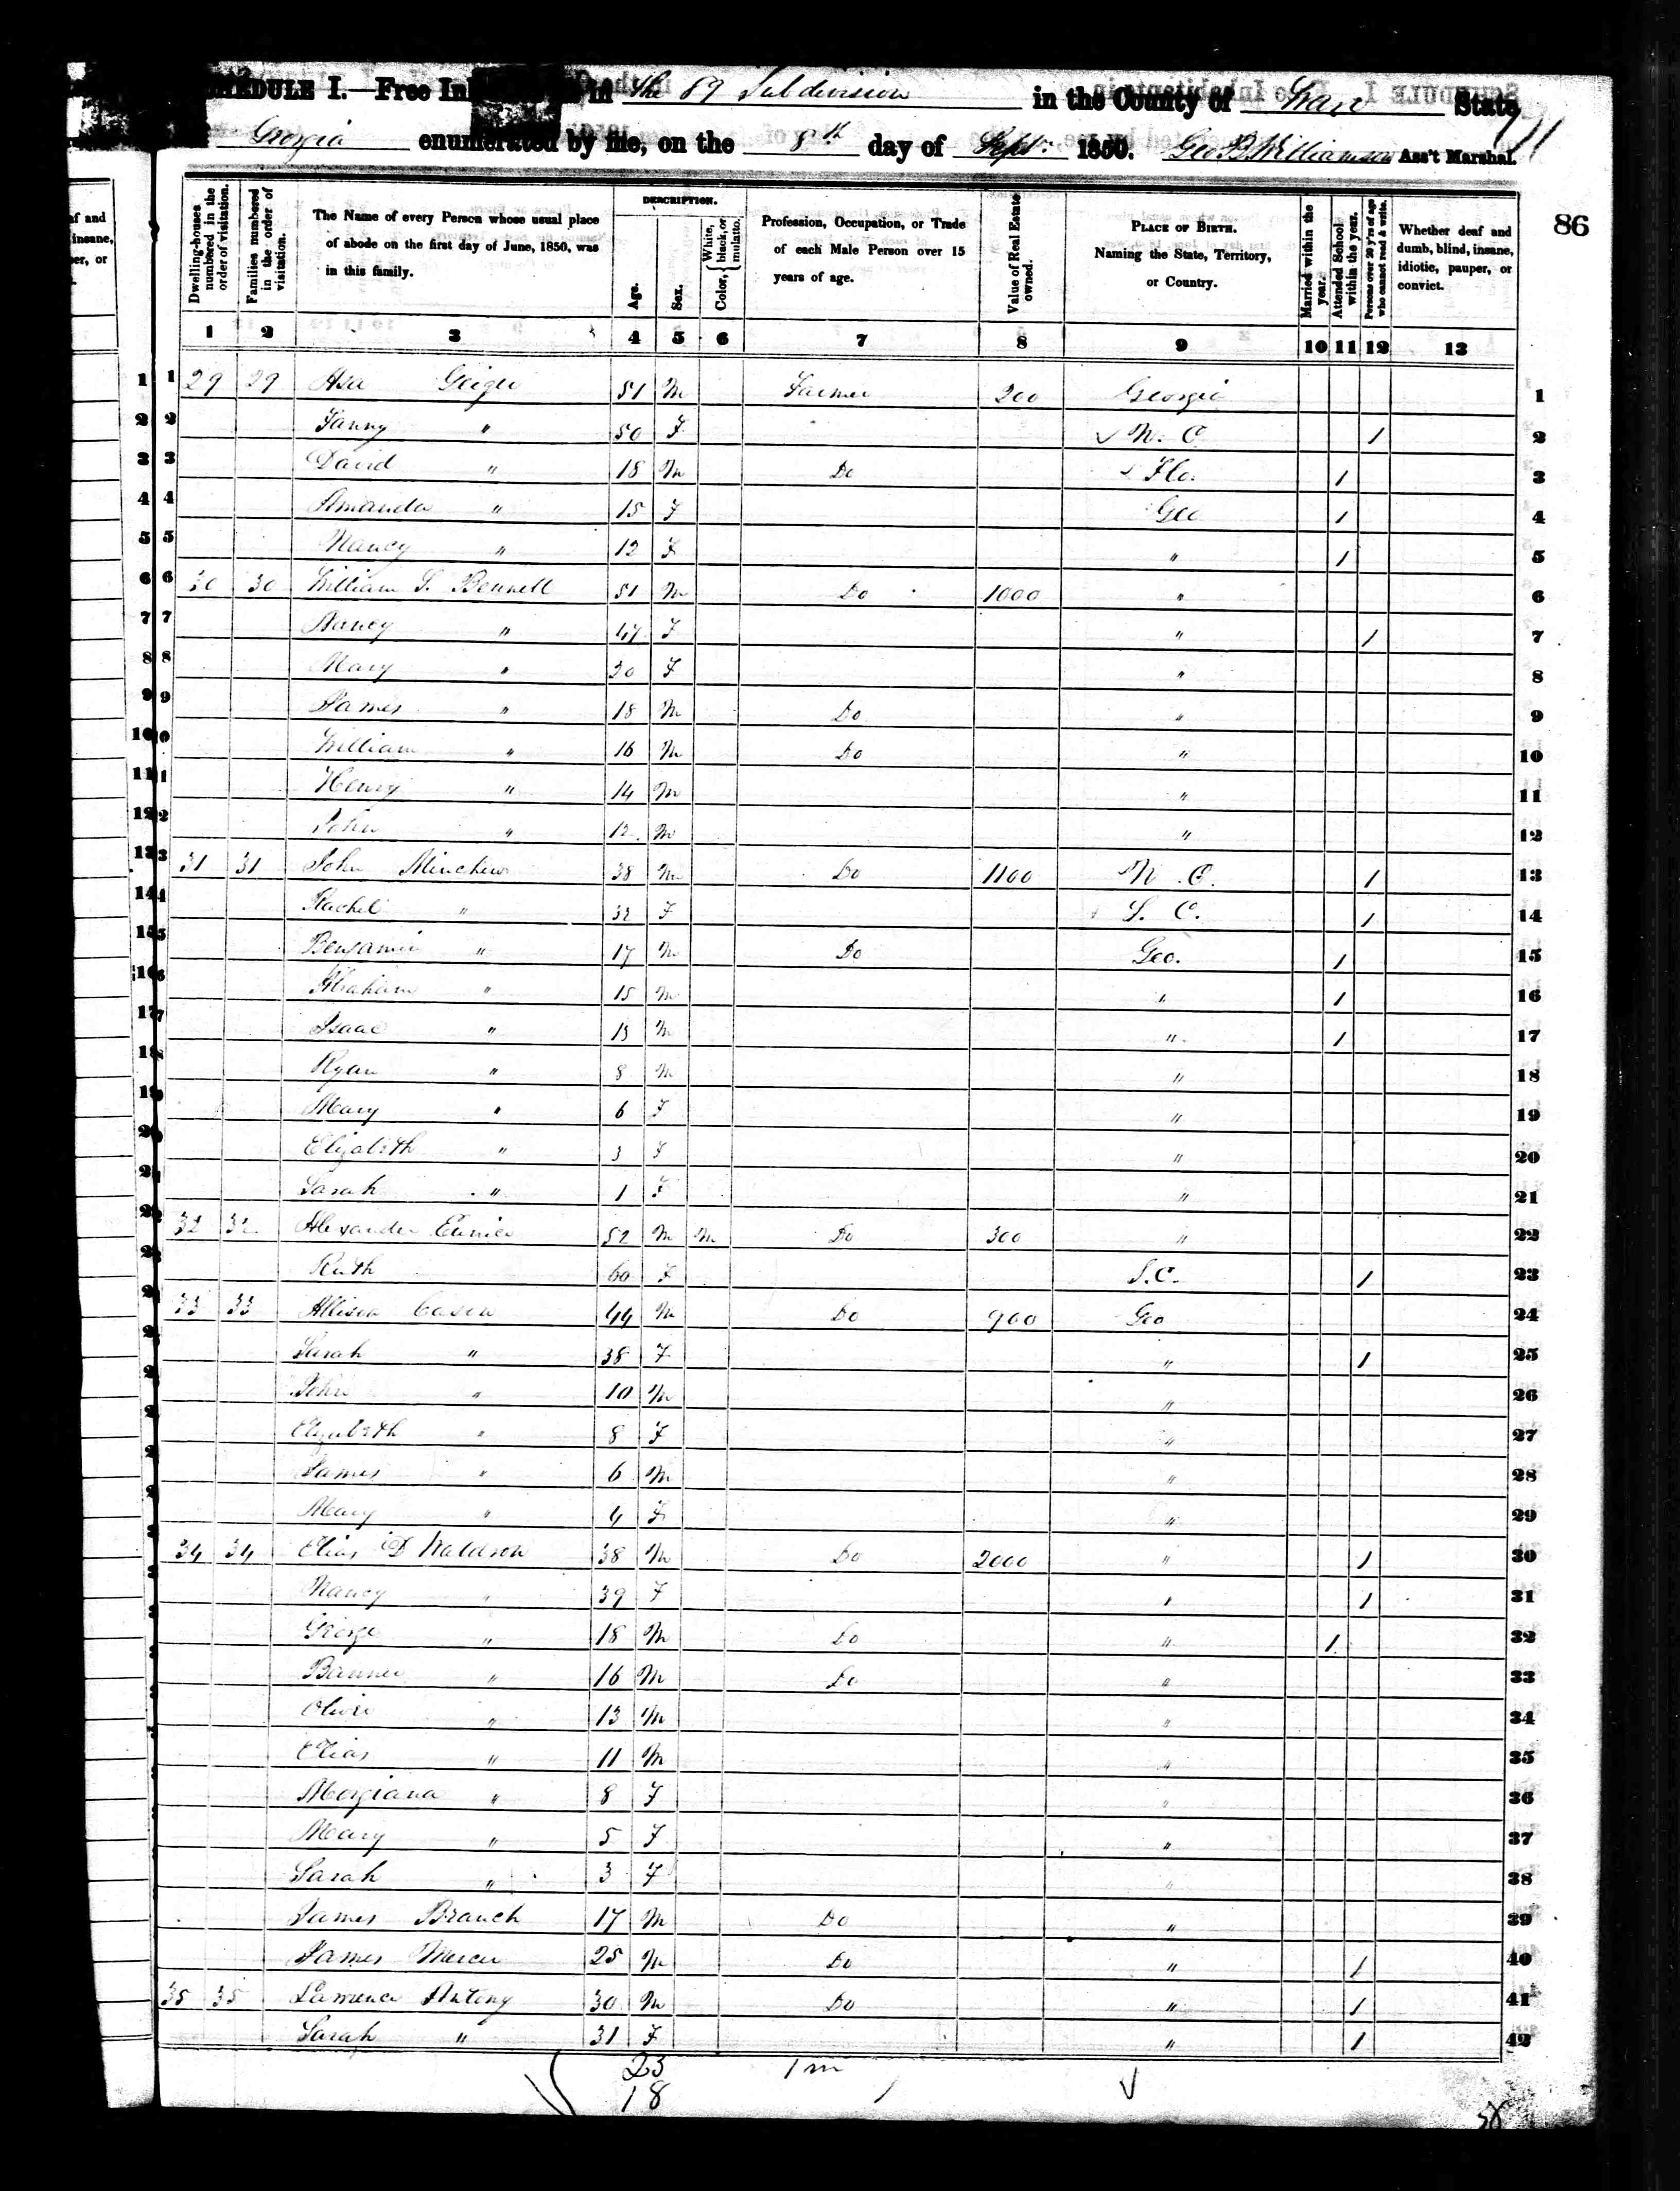 SCHEDULE I.—Free In in the 89 Subdivision in the County of State
Georgia enumerated by me, on the 8th day of Sept: 1850. Geo. B. Williamson Ass't Marshal.
86
Dwelling-houses numbered in the order of visitation.
Families numbered in the order of visitation.
The Name of every Person whose usual place of abode on the first day of June, 1850, was in this family.
DESCRIPTION.
Age.
Sex.
Color, { White, black, or mulatto.
Profession, Occupation, or Trade of each Male Person over 15 years of age.
Value of Real Estate owned.
PLACE OF BIRTH. Naming the State, Territory, or Country.
Married within the year.
Attended School within the year.
Persons over 20 y'rs of age who cannot read & write.
Whether deaf and dumb, blind, insane, idiotic, pauper, or convict.
1 2 3 4 5 6 7 8 9 10 11 12 13
1 29 29 Asa Geiger 51 M Farmer 200 Georgia 1
2 Fanny " 50 F N. C. 1 2
3 David " 18 M Do Flo. 1 3
4 Amanda " 15 F Geo 1 4
5 Nancy " 12 F " 1 5
6 30 30 William S. Bennett 51 M Do 1000 " 6
7 Nancy " 47 F " 1 7
8 Mary " 20 F " 8
9 James " 18 M Do " 9
10 William " 16 M Do " 10
11 Henry " 14 M " 11
12 John " 12 M " 12
13 31 31 John Minchew 38 M Do 1100 N. C. 1 13
14 Rachel " 32 F S. C. 1 14
15 Benjamin " 17 M Do Geo. 1 15
16 Abraham " 15 M " 1 16
17 Isaac " 13 M " 1 17
18 Ryan " 8 M " 18
19 Mary " 6 F " 19
20 Elizabeth " 3 F " 20
21 Sarah " 1 F " 21
22 32 32 Alexander Eunice 52 M M Do 300 " 22
23 Ruth 60 F S.C. 1 23
24 33 33 Allison Cason 44 M Do 900 Geo 24
25 Sarah " 38 F " 1 25
26 John " 10 M " 26
27 Elizabeth " 8 F " 27
28 James " 6 M " 28
29 Mary " 4 F " 29
30 34 34 Elias D Waldron 38 M Do 2000 " 1 30
31 Nancy " 39 F " 1 31
32 George " 18 M Do " 1 32
33 " 16 M Do " 33
34 " 13 M " 34
35 Elias " 11 M " 35
36 Morgiana " 8 F " 36
37 Mary " 5 F " 37
38 Sarah " 3 F " 38
39 James Branch 17 M Do " 39
40 James Mercer 25 M Do " 1 40
41 35 35 Lawrence Antony 30 M Do " 1 41
42 Sarah " 31 F " 1 42
23 1 m
18